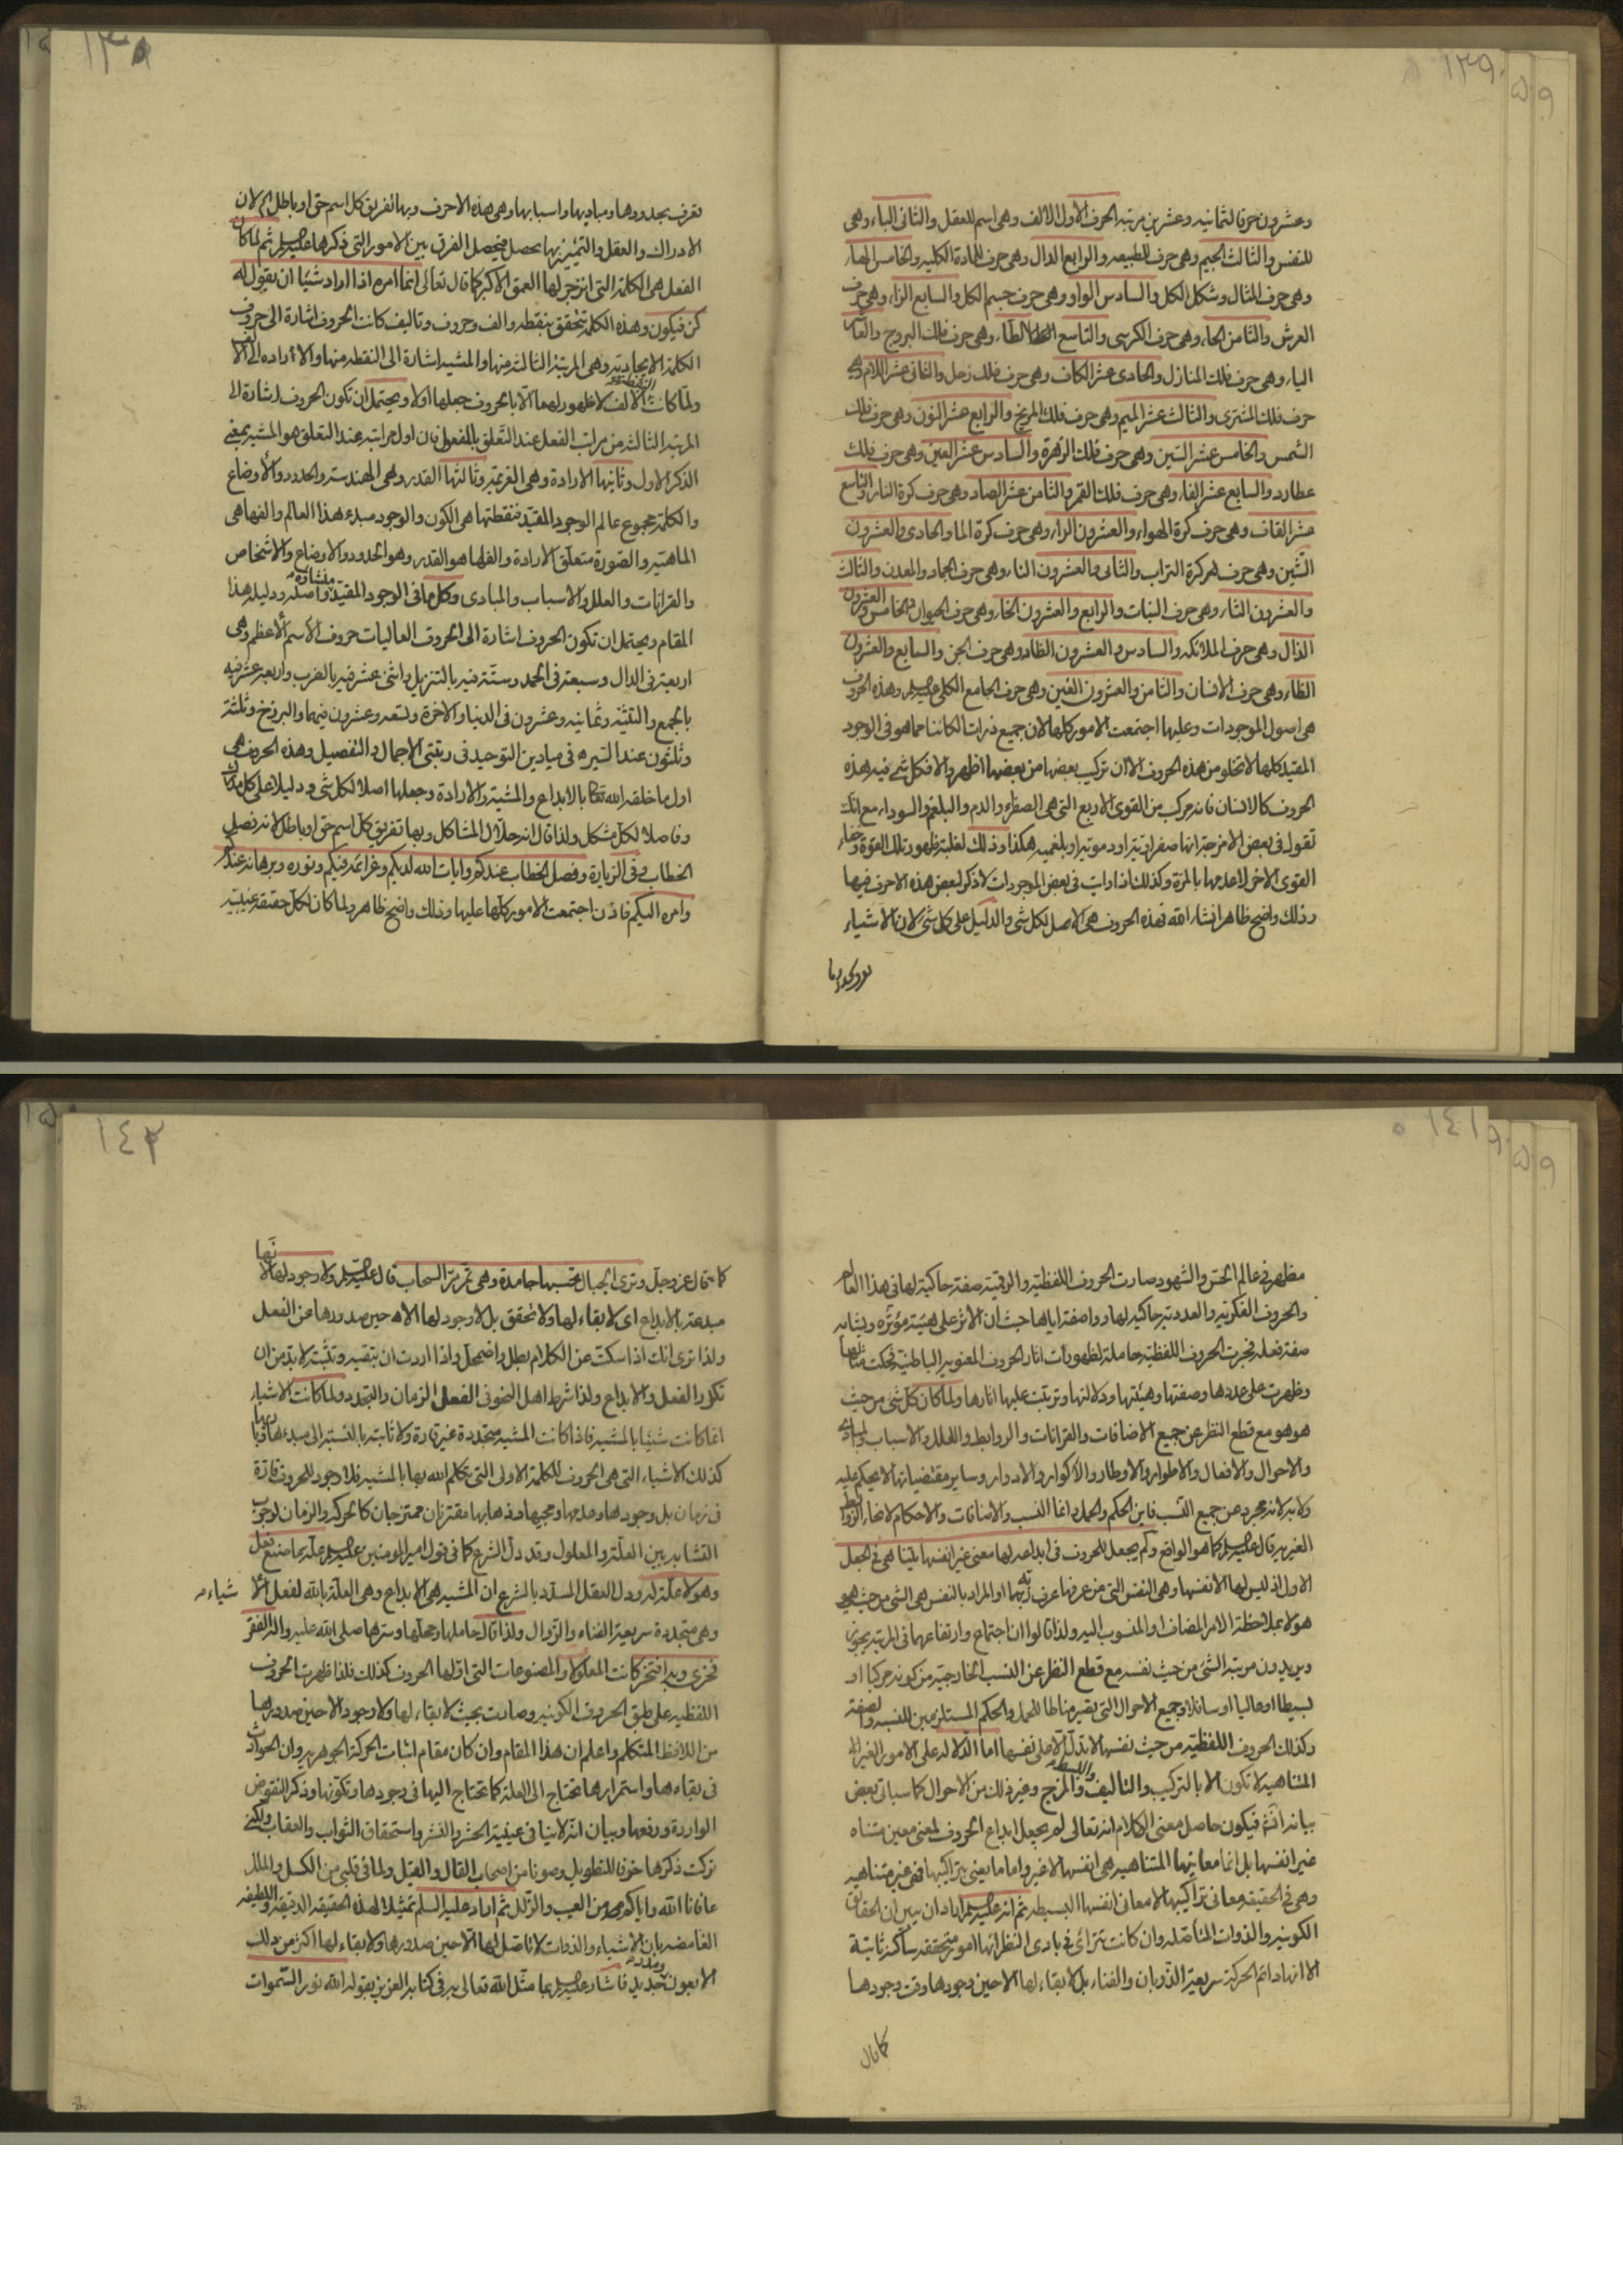 ١٣٩
وعشرون حرفا لثمانيه وعشرين مرتبه الحرف الاول الالف وهى اسم للعقل والثانى الباء وهى
للنفس والثالث الجيم وهى حرف الطبيعه والرابع الدال وهى حرف المادة الكليه والخامس الهاء
وهى حرف المثال وشكل الكل والسادس الواو وهى حرف جسم الكل والسابع الزاء وهى حرف
العرش والثامن الحاء وهى حرف الكرسى والتاسع الطاء وهى حرف فلك البروج والعاشر
الياء وهى حرف فلك المنازل والحادى عشر الكاف وهى حرف فلك زحل والثانى عشر اللام وهى
حرف فلك المشترى والثالث عشر الميم وهى حرف فلك المريخ والرابع عشر النون وهى حرف فلك
الشمس والخامس عشر السين وهى حرف فلك الزهرة والسادس عشر العين وهى حرف فلك
عطارد والسابع عشر الفاء وهى حرف فلك القمر والثامن عشر الصاد وهى حرف كرة النار والتاسع
عشر القاف وهى حرف كرة الهواء والعشرون الراء وهى حرف كرة الماء والحادى والعشرون
الشين وهى حرف كرة التراب والثانى والعشرون التاء وهى حرف الجماد والمعدن والثالث
والعشرون الثاء وهى حرف النبات والرابع والعشرون الخاء وهى حرف الحيوان والخامس والعشرون
الذال وهى حرف الملائكه والسادس والعشرون الضاد وهى حرف الجن والسابع والعشرون
الظاء وهى حرف الانسان والثامن والعشرون الغين وهى حرف الجامع الكلى وهذه الحروف
هى اصول الموجودات وعليها اجتمعت الامور كلها لان جميع ذرات الكائنات مما هو فى الوجود
المقيد كلها لا تخلو من هذه الحروف الا ان تركيب بعضها من بعضها اظهر والا فكل شئ فيه هذه
الحروف كالانسان فانه مركب من القوى الاربع التى هى الصفراء والدم والبلغم والسوداء مع انك
تقول فى بعض الامزجة انها صفراوية او دموية او بلغميه هكذا وذلك لغلبة ظهور تلك القوة وخفاء
القوى الاخر لا عدمها بالمرة وكذلك اذا رايت فى بعض الموجودات لا ذكر لبعض هذه الاحرف فيها
وذلك واضح ظاهر انشاء الله فهذه الحروف هى الاصل لكل شئ والدليل على كل شئ لان الاشياء
تعرف بحدودها ومباديها واسبابها وهى هذه الاحرف وبها تفريق كل اسم حق او باطل لان
الادراك والعقل والتميز بها يحصل فيحصل الفرق بين الامور التى ذكرها ثم لما كان
الفعل هى الكلمة التى انزجر لها العمق الاكبر كما قال تعالى انما امره اذا اراد شيئا ان يقول له
كن فيكون وهذه الكلمة تتحقق بنقطه والف وحروف وتاليف كانت الحروف اشارة الى حروف
الكلمة الايجادية وهى المرتبة الثالثه منها والمشيه اشارة الى النقطه منها والاراده الى الالف
ولما كانت الالف لا ظهور لهما الا بالحروف جعلها اولا ويحتمل ان تكون الحروف اشارة الى
المرتبه الثالثه من مراتب الفعل عند التعلق بالمفعول فان اول مراتبه عند التعلق هو المشيه بمعنى
الذكر الاول وثانيها الارادة وهى العزيمة وثالثها القدر وهى الهندسة والحدود والاوضاع
والكلمة مجموع عالم الوجود المقيد فنقطتها هى الكون والوجود مبدء هذا العالم والفها هى
الماهية والصورة متعلق الارادة والفها هو القدر وهو الحدود والاوضاع والاشخاص
والقرانات والعلل والاسباب والمبادى وكل ما فى الوجود المقيد منشاؤه واصله ودليله هذا
المقام ويحتمل ان تكون الحروف اشارة الى الحروف العاليات حروف الاسم الاعظم وهى
اربعة فى الدال وسبعة فى الحمد وستة فيه بالتنزيل واثنى عشر فيه بالضرب واربعة عشر فيه
بالجمع والتثنية وثمانيه وعشرون فى الدنيا والاخرة وتسعه وعشرون فيهما والبرزخ وثلثة
وثلثون عند السير فى ميادين التوحيد فى رتبتى الاجمال والتفصيل وهذه الحروف هى
اول ما خلقه الله تعالى بالابداع والمشية والارادة وجعلها اصلا لكل شئ ودليلا على كل مدرك
وفاصلا لكل مشكل ولذا قال انه حلال المشاكل وبها تفريق كل اسم حق او باطل لانه فصل
الخطاب وفى الزيارة وفصل الخطاب عندكم وايات الله لديكم وعزائمه فيكم ونوره وبرهانه عندكم
وامره اليكم فاذن اجتمعت الامور كلها عليها وذلك واضح ظاهر ولما كان لكل حقيقة غيبية
١٤١
مظهر فى عالم الحس والشهود صارت الحروف اللفظية والرقمية صفة حاكية لها فى هذا العالم
والحروف الفكرية والعددية حاكيه لها وواصفة اياها حيث ان الاثر على هيئة مؤثره ويشابه
صفة فعله فجرت الحروف اللفظية حاملة لظهورات اثار الحروف المعنوية الباطنية فحكت مثالها
وظهرت على عددها وصفتها وهيئتها ودلالتها وترتبت عليها اثارها ولما كان كل شئ من حيث
هو هو مع قطع النظر عن جميع الاضافات والقرانات والروابط والعلل والاسباب
والاحوال والافعال والاطوار والاوطار والاكوار والادوار وساير مقتضياتها لا يحكم عليه
ولا به لانه مجرد عن جميع النسب فاين الحكم والحمل وانما النسب والاضافات والاحكام لانحاء الروابط
الغيرية قال كما هو الواقع ولم يجعل للحروف فى ابداعه لها معنى غير انفسها يتناهى فى الجعل
الاول اذ ليس لها الا نفسها وهى النفس التى من عرفها عرف ربه او المراد بالنفس هى الشئ من حيث هى
هو لا بملاحظة الامر المضاف او المنسوب اليه ولذا قالوا ان اجتماع وارتفاعهما فى المرتبة يجوز
ويريدون مرتبة الشئ من حيث نفسه مع قطع النظر عن النسب الخارجية من كونه مركبا او
بسيطا او عاليا او سافلا وجميع الاحوال التى يصير مناطا للحمل والحكم المستلزمين للنسبه والصفة
وكذلك الحروف اللفظية من حيث نفسها لا تدل الا على نفسها اما الدلالة على الامور الغير
المتناهيه لا تكون الا بالتركيب والتاليف والمزج وغير ذلك من الاحوال كما سياتى بعض
بيانه انشاء الله فيكون حاصل معنى الكلام انه تعالى لم يجعل ابداع الحروف لمعنى معين متناه
غير انفسها بل انما معانيها المتناهيه هى انفسها لا غير واما ما يعنى بتراكيبها ففى غير متناهيه
وهى فى الحقيقه معانى تراكيبها لا معانى انفسها البسيطه ثم انه اراد ان يبين ان الحقائق
الكونيه والذوات المتاصله وان كانت تترائى فى بادى النظر انها امور متحققه ساكنة ثابتة
الا انها دائم الحركة سريعة الذوبان والفناء بل لا بقاء لها الا حين وجودها وقت وجودها
كما قال
١٤٢
كما قال عز وجل وترى الجبال تحسبها جامدة وهى تمر مر السحاب قال ولا وجود لها لانها
مبدعة بالابداع اى لا بقاء لها ولا تحقق بل لا وجود لها الا حين صدورها عن الفعل
ولذا ترى انك اذا سكت عن الكلام بطل واضمحل واذا اردت ان تبقيه وتثبته لا بد من ان
تكرر الفعل والابداع ولذا شرط اهل النحو فى الفعل الزمان والتجدد ولما كانت الاشياء
انما كانت شيئا بالمشيه فاذا كانت المشيه متجددة غير قارة ولا ثابتة بالنسبة الى مبدءها
كذلك الاشياء التى هى الحروف للكلمة الاولى التى تكلم الله بها بالمشيه فلا وجود للحروف قارة
فى زمان بل وجودها وعدمها ومجيها وذهابها مقترنان ممتزجان كالحركه والزمان لوجوب
التشابه بين العلة والمعلول وقد دل الشرع كما فى قول امير المؤمنين علة ما صنع فعله
وهو لا علة له ودل العقل المسدد بالشرع ان المشيه هى الابداع وهى العلة بالله لفعل الاشياء
وهى متجددة سريعة الفناء والزوال ولذا قال حاملها ومحلها وسرها صلى الله عليه واله الفقر
فخرى وبه افتخر كانت المعلولات والمصنوعات التى اولها الحروف كذلك فلذا ظهرت الحروف
اللفظيه على طبق الحروف الكونيه وصارت بحيث لا بقاء لها ولا وجود الا حين صدورها
من اللافظ المتكلم واعلم ان هذا المقام وان كان مقام اثبات الحركة الجوهرية وان الحوادث
فى بقاءها واستمرارها تحتاج الى العلة كما تحتاج اليها فى وجودها وتكونها وذكر النقوض
الواردة ودفعها وبيان انه لا ينافى عينية الحشر والنشر واستحقاق الثواب والعقاب ولكنى
تركت ذكرها خوفا للتطويل وصونا من اصحاب القال والقيل ولما فى قلبى من الكسل والملل
عافانا الله واياكم من العيب والزلل ثم اراد عليه السلم تمثيلا لهذه الحقيقه الدقيقه واللطيفه
الغامضه بان الاشياء والذوات لا تاصل لها الا حين صدورها ولا بقاء لها اكثر من ذلك
الا بعون جديد فاشار بما مثل الله تعالى به فى كتابه العزيز بقوله الله نور السموات